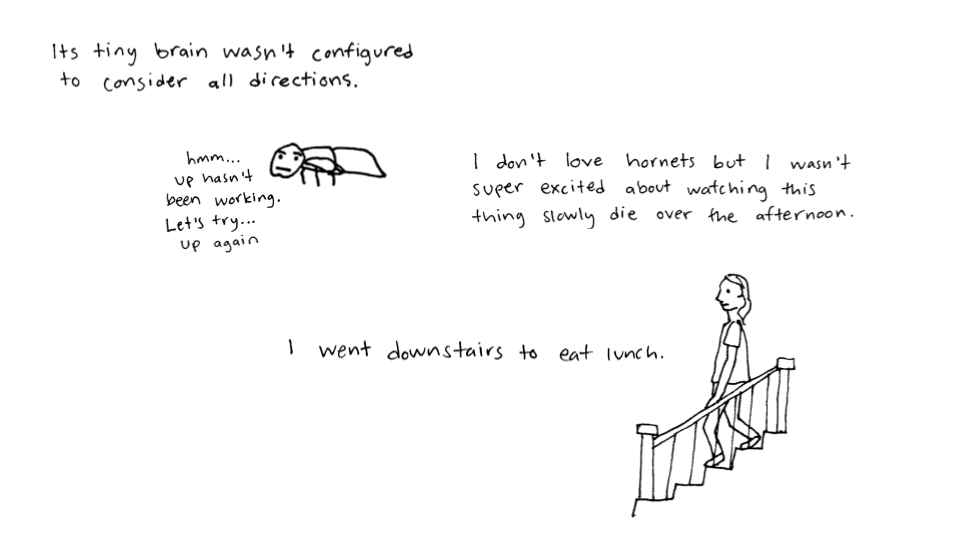 Its tiny brain wasn't configured
to consider all directions.
hmm...
up hasn't
been working.
Let's try...
up again
I don't love hornets but I wasn't
super excited about watching this
thing slowly die over the afternoon.
I went downstairs to eat lunch.